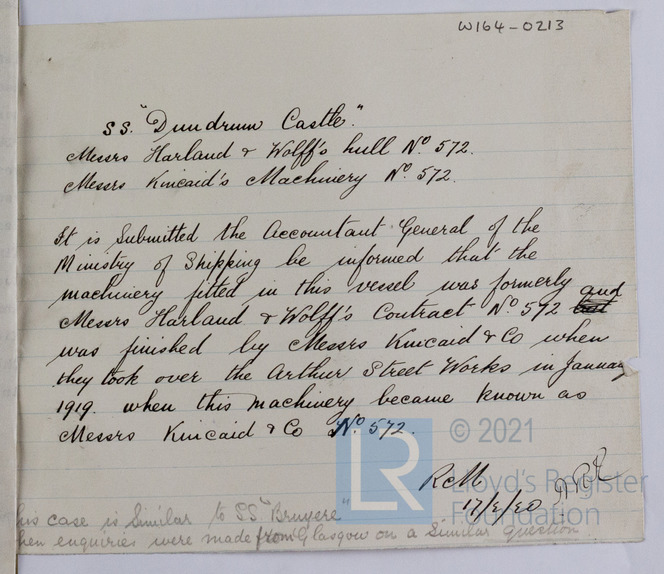 W164-0213
SS. "Dundrum Castle."
Messrs Harland & Wolff's hull No 572.
Messrs Kincaid's Machinery No. 572.
It is Submitted the Accountant General of the
Ministry of Shipping be informed that the
machinery fitted in this vessel was formerly and
Messrs Harland & Wolff's Contract No 572
was finished by Messrs Kincaid & Co when
they took over the Arthur Street Works in January
1919 when this machinery became known as
Messrs Kincaid & Co No 572.
© 2021
LR
Lloyd's Register
Foundation
RCM
his case is Similar to SS "Bruyere"
hen enquiries were made from Glasgow on a Similar question